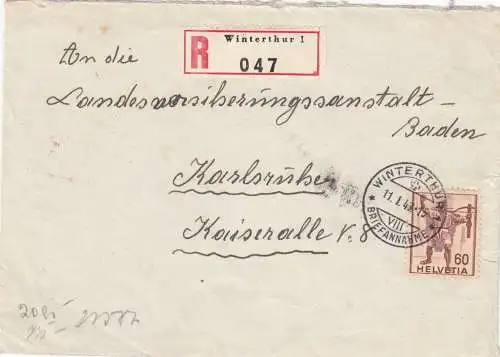 Winterthur 1
R
047
An die
Landesversicherungsanstalt –
Baden
Karlsruhe
Kaiserallee
WINTERTHUR 1
11.I.4
VIII
* BRIEFANNAHME *
60
HELVETIA